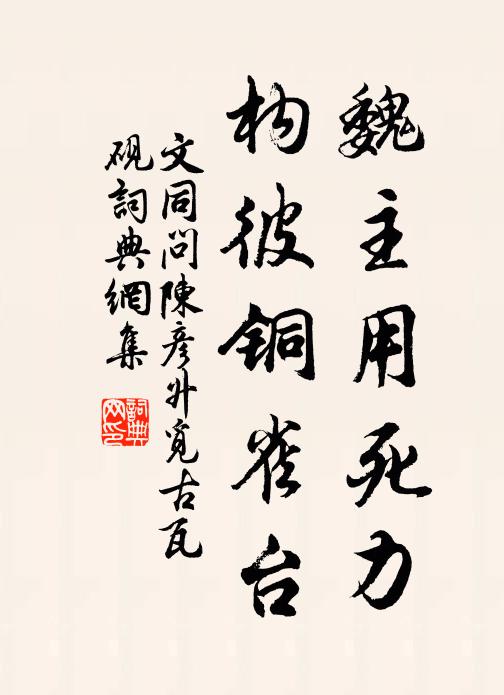 魏主用死力
构彼铜雀台
文同问陳彦升覓古瓦
砚詞典網集
詞典
网印